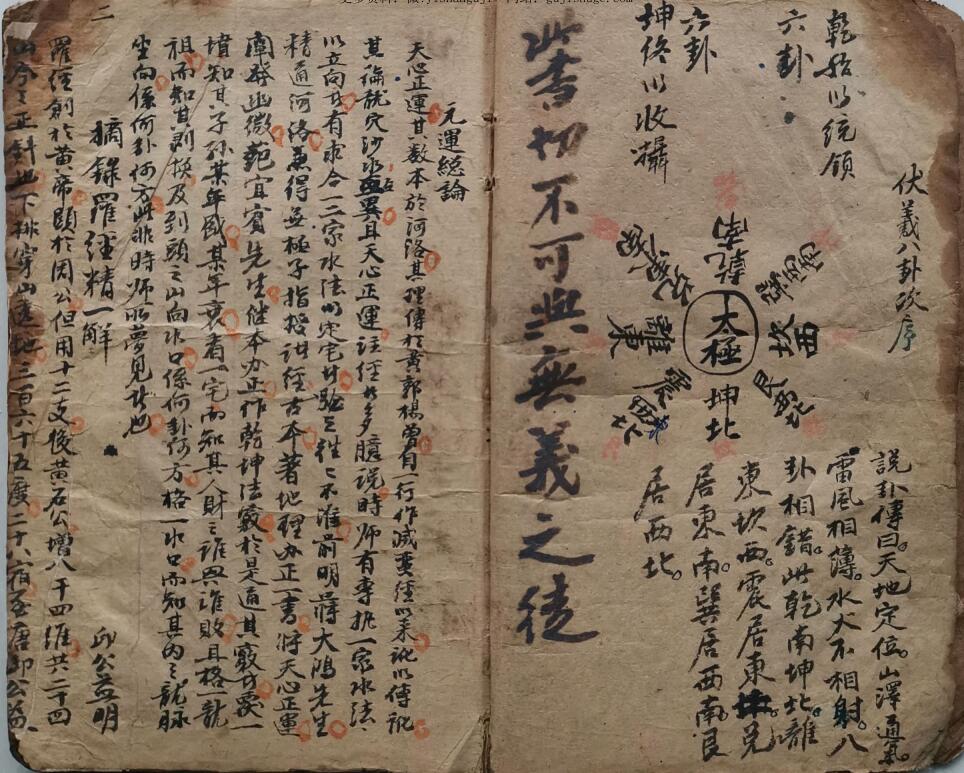 伏羲八卦次序
乾始以統領
六卦
六卦
坤終以收攝
太極
乾南
坤北
離東
坎西
艮西北
說卦傳曰。天地定位。山澤通氣。
雷風相薄。水火不相射。八
卦相錯。此乾南坤北。離
東坎西。震居東北兌
居東南。巽居西南。艮
居西北。
此書切不可與無義之徒
元運總論
天心正運其数本於河洛其理傳於黃郭楊曾自一行作滅蛮經以来訛以傳訛
其倫龍穴沙水且天心正運註經者多臆說時师有專執一家水法
以立向者有求合三家水法以定宅者驗之往々不准前明蒋大鴻先生
精通河洛兼得無極子指授註經古本著地理办正一書将天心正運
闡發幽微苑宜賓先生继本办正作乾坤法竅於是通其竅者英一
墳知其子孫某年盛某年衰看一宅而知其人財之誰興誰敗且格一龍
祖而知其剥换及到頭之山向水口係何卦何方格一水口而知其内之龍脉
坐向係何卦何方此非時师所夢見者也
摘錄羅經精一解
邱公益明
羅經創於黃帝顕於周公但用十二支後黃石公增八干四維共二十四
山今之正針地下排穿山透地三百六十五度二十八宿至唐邱公益
二